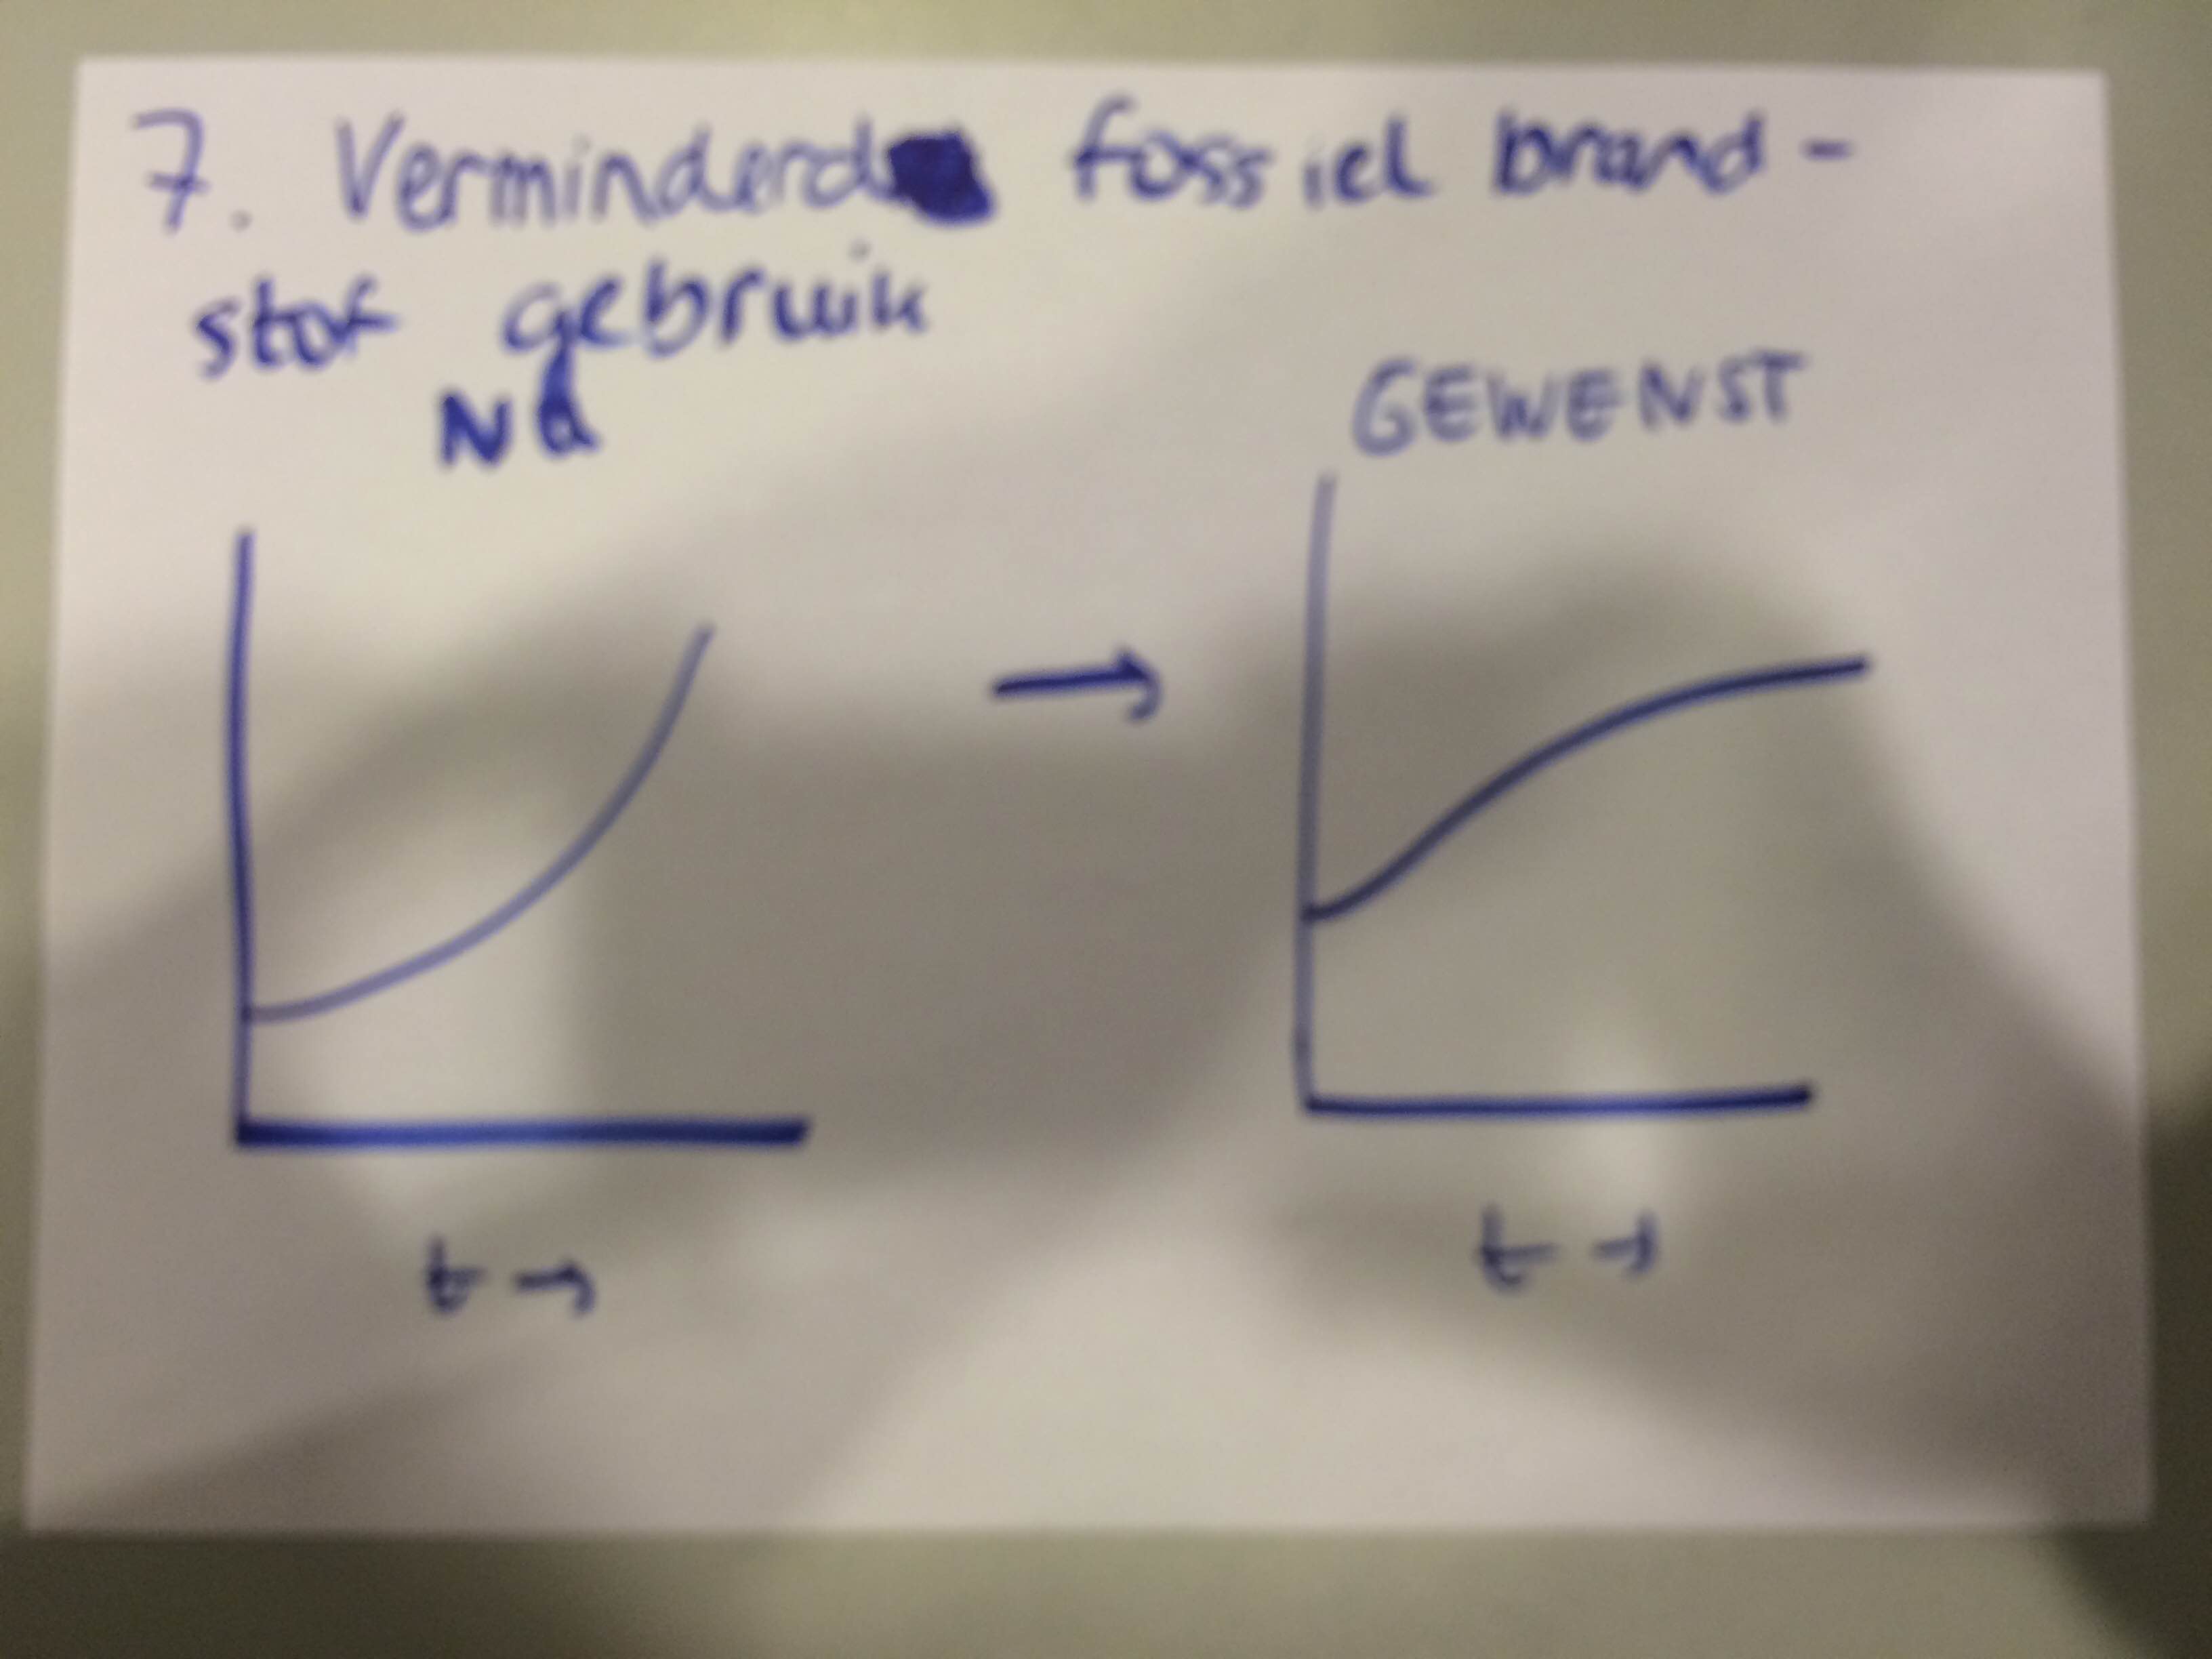 7. Verminderd fossiel brand-
stof gebruik
Na GEWENST
→
t → t →